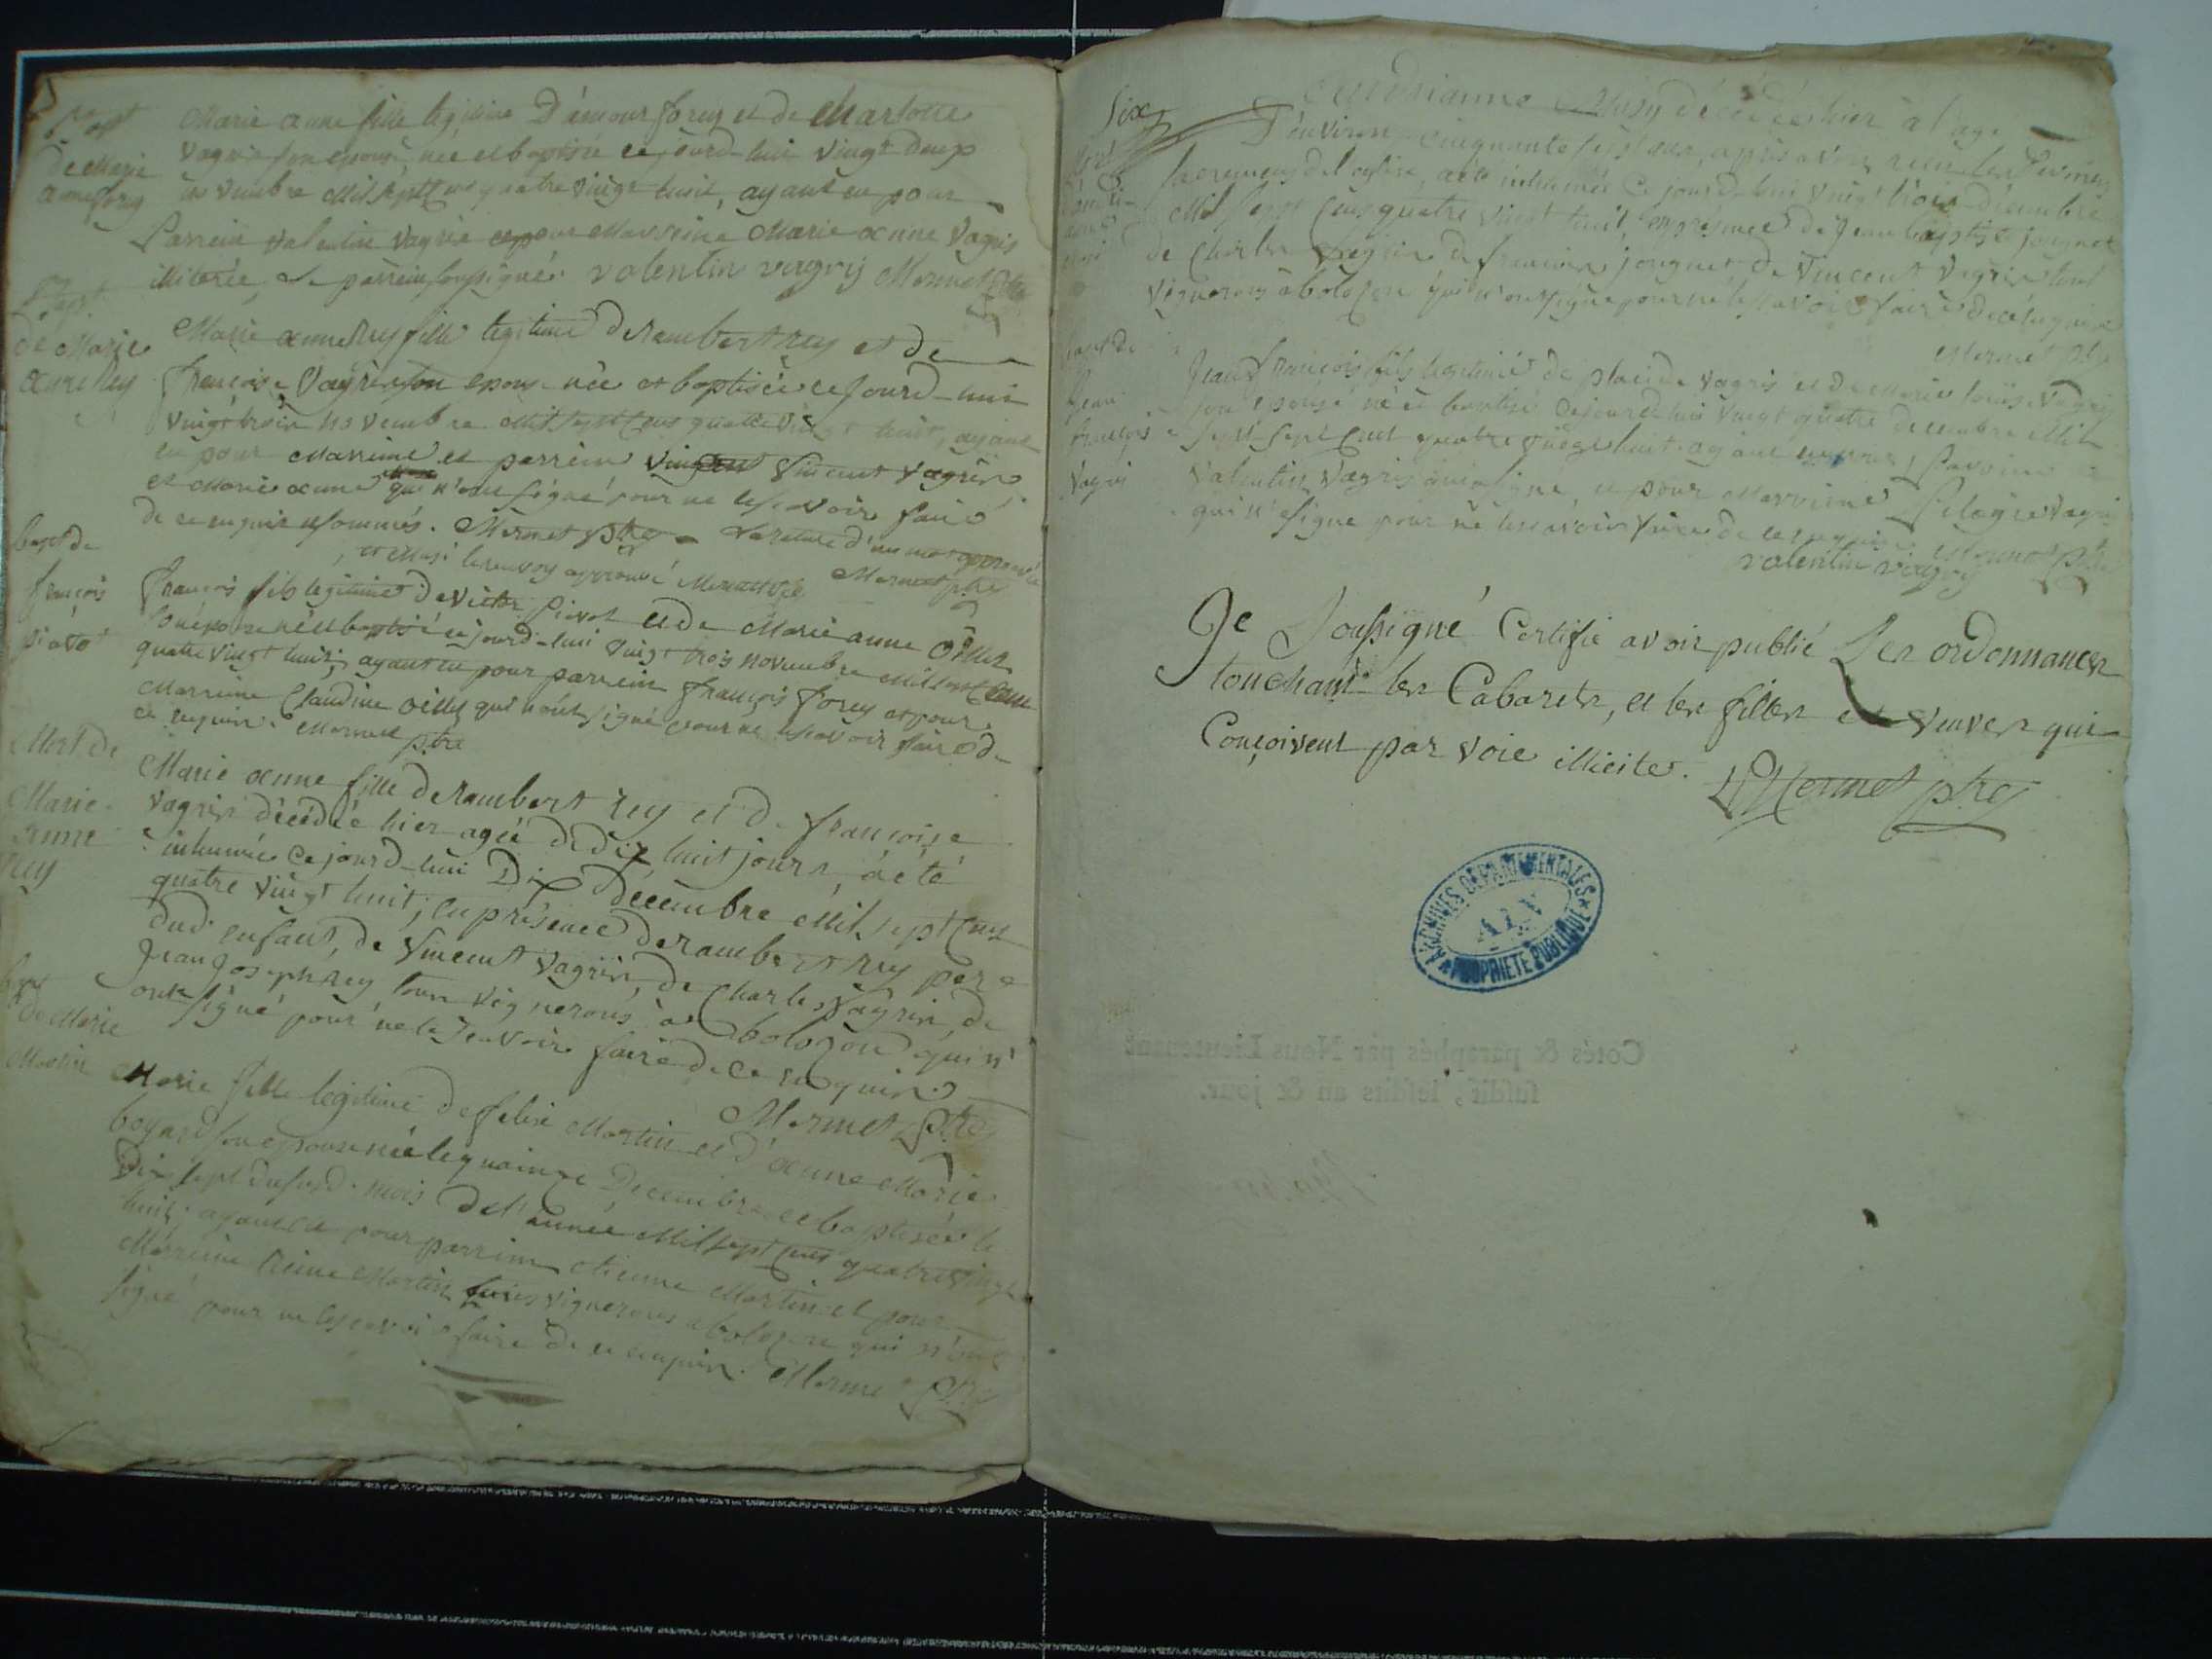 bapt
de Marie
anne forey
Marie anne fille legitime D'amour forey et de Charlotte
Vagris son epouse, née et baptisée cejourd-hui vingt Deux
novembre Mil sept cens quatre vingt huit, ayant eu pour
Parrein valentin vagris et pour Marreine Marie anne Vagris
illiterée, Le parrein soussigné. valentin vagrij Mermet ptre
bapt
de Marie
anne Rey
Marie anne Rey fille legitime de rambert rey et de
françoise Vagris son epouse née et baptisée cejourd-hui
vingt trois novembre mil sept cens quatre vingt huit, ayant
eu pour marreine et parrein Vincent vagris
et Marie anne qui n'ont signé pour ne le scavoir faire
de ce enquis et sommés. Mermet ptre La rature d'un mot approuvée
et Musi le renvoy approuvé Mermet ptre Mermet ptre
bapt de
françois
pivot
françois fils legitime de victor pivot et de Marie anne Oillet
son epouse né et baptisé cejourd-hui vingt trois novembre mil sept cens
quatre vingt huit, ayant eu pour parrein françois forey et pour
Marreine Claudine oillet qui n'ont signé pour ne le scavoir faire de
ce enquis. Mermet ptre
Mort de
Marie
anne
rey
Marie anne fille de rambert rey et de françoise
vagris décédée hier agée de dix huit jours, a été
inhumée cejourd-hui Dix décembre Mil sept cens
quatre vingt huit, en présence de rambert rey pere
dud. enfant, de Vincent vagris, de Charles vagris, de
Jean Joseph rey tous vignerons à bolozon qui n'
ont signé pour ne le scavoir faire de ce enquis.
Mermet ptre
bapt
de Marie
Martin
Marie fille legitime de felix Martin et d'anne Marie
boyard son epouse née le quainze Decembre et baptisée le
Dix sept dususd. mois de l'année Mil sept cens quatre vingt
huit, ayant eu pour parrein etienne Martin et pour
Marreine Martin vignerons a bolozon qui n'ont
signé pour ne le scavoir faire de ce enquis. Mermet ptre
Six
Mort
Musy décédée hier a l'age
D'environ cinquante sept ans, apres avoir recu les Derniers
sacremens de l'eglise, a été inhumée cejourd-hui vingt trois decembre
Mil sept cens quatre vingt huit, en presence de Jean baptiste jouquet
de Charles Vagris de françois jouquet, de Vincent Vagris tous
vignerons à bolozon qui n'ont signé pour ne le scavoir faire de ce enquis
Mermet ptre
bapt de
Jean
françois
Vagris
Jean françois fils legitime de placide vagris et de Marie louise vagris
son epouse né et baptisé cejourd-hui vingt quatre decembre Mil
sept cens quatre vingt huit. ayant eu pour Parrein
Valentin Vagris qui a signé, et pour Marreine Pelagie Vagris
qui n'a signé pour ne le scavoir faire de ce enquise Mermet ptre
valentin vagrij
Je Soussigné Certifie avoir publié Les ordonnances
touchant les Cabarets, et les filles et veuves qui
Conçoivent par voie illicite. Mermet ptre
ARCHIVES DÉPARTEMENTALES
AIN
PROPRIÉTÉ PUBLIQUE
Cotés & paraphés par Nous Lieutenant
susdit, lesdits an & jour.